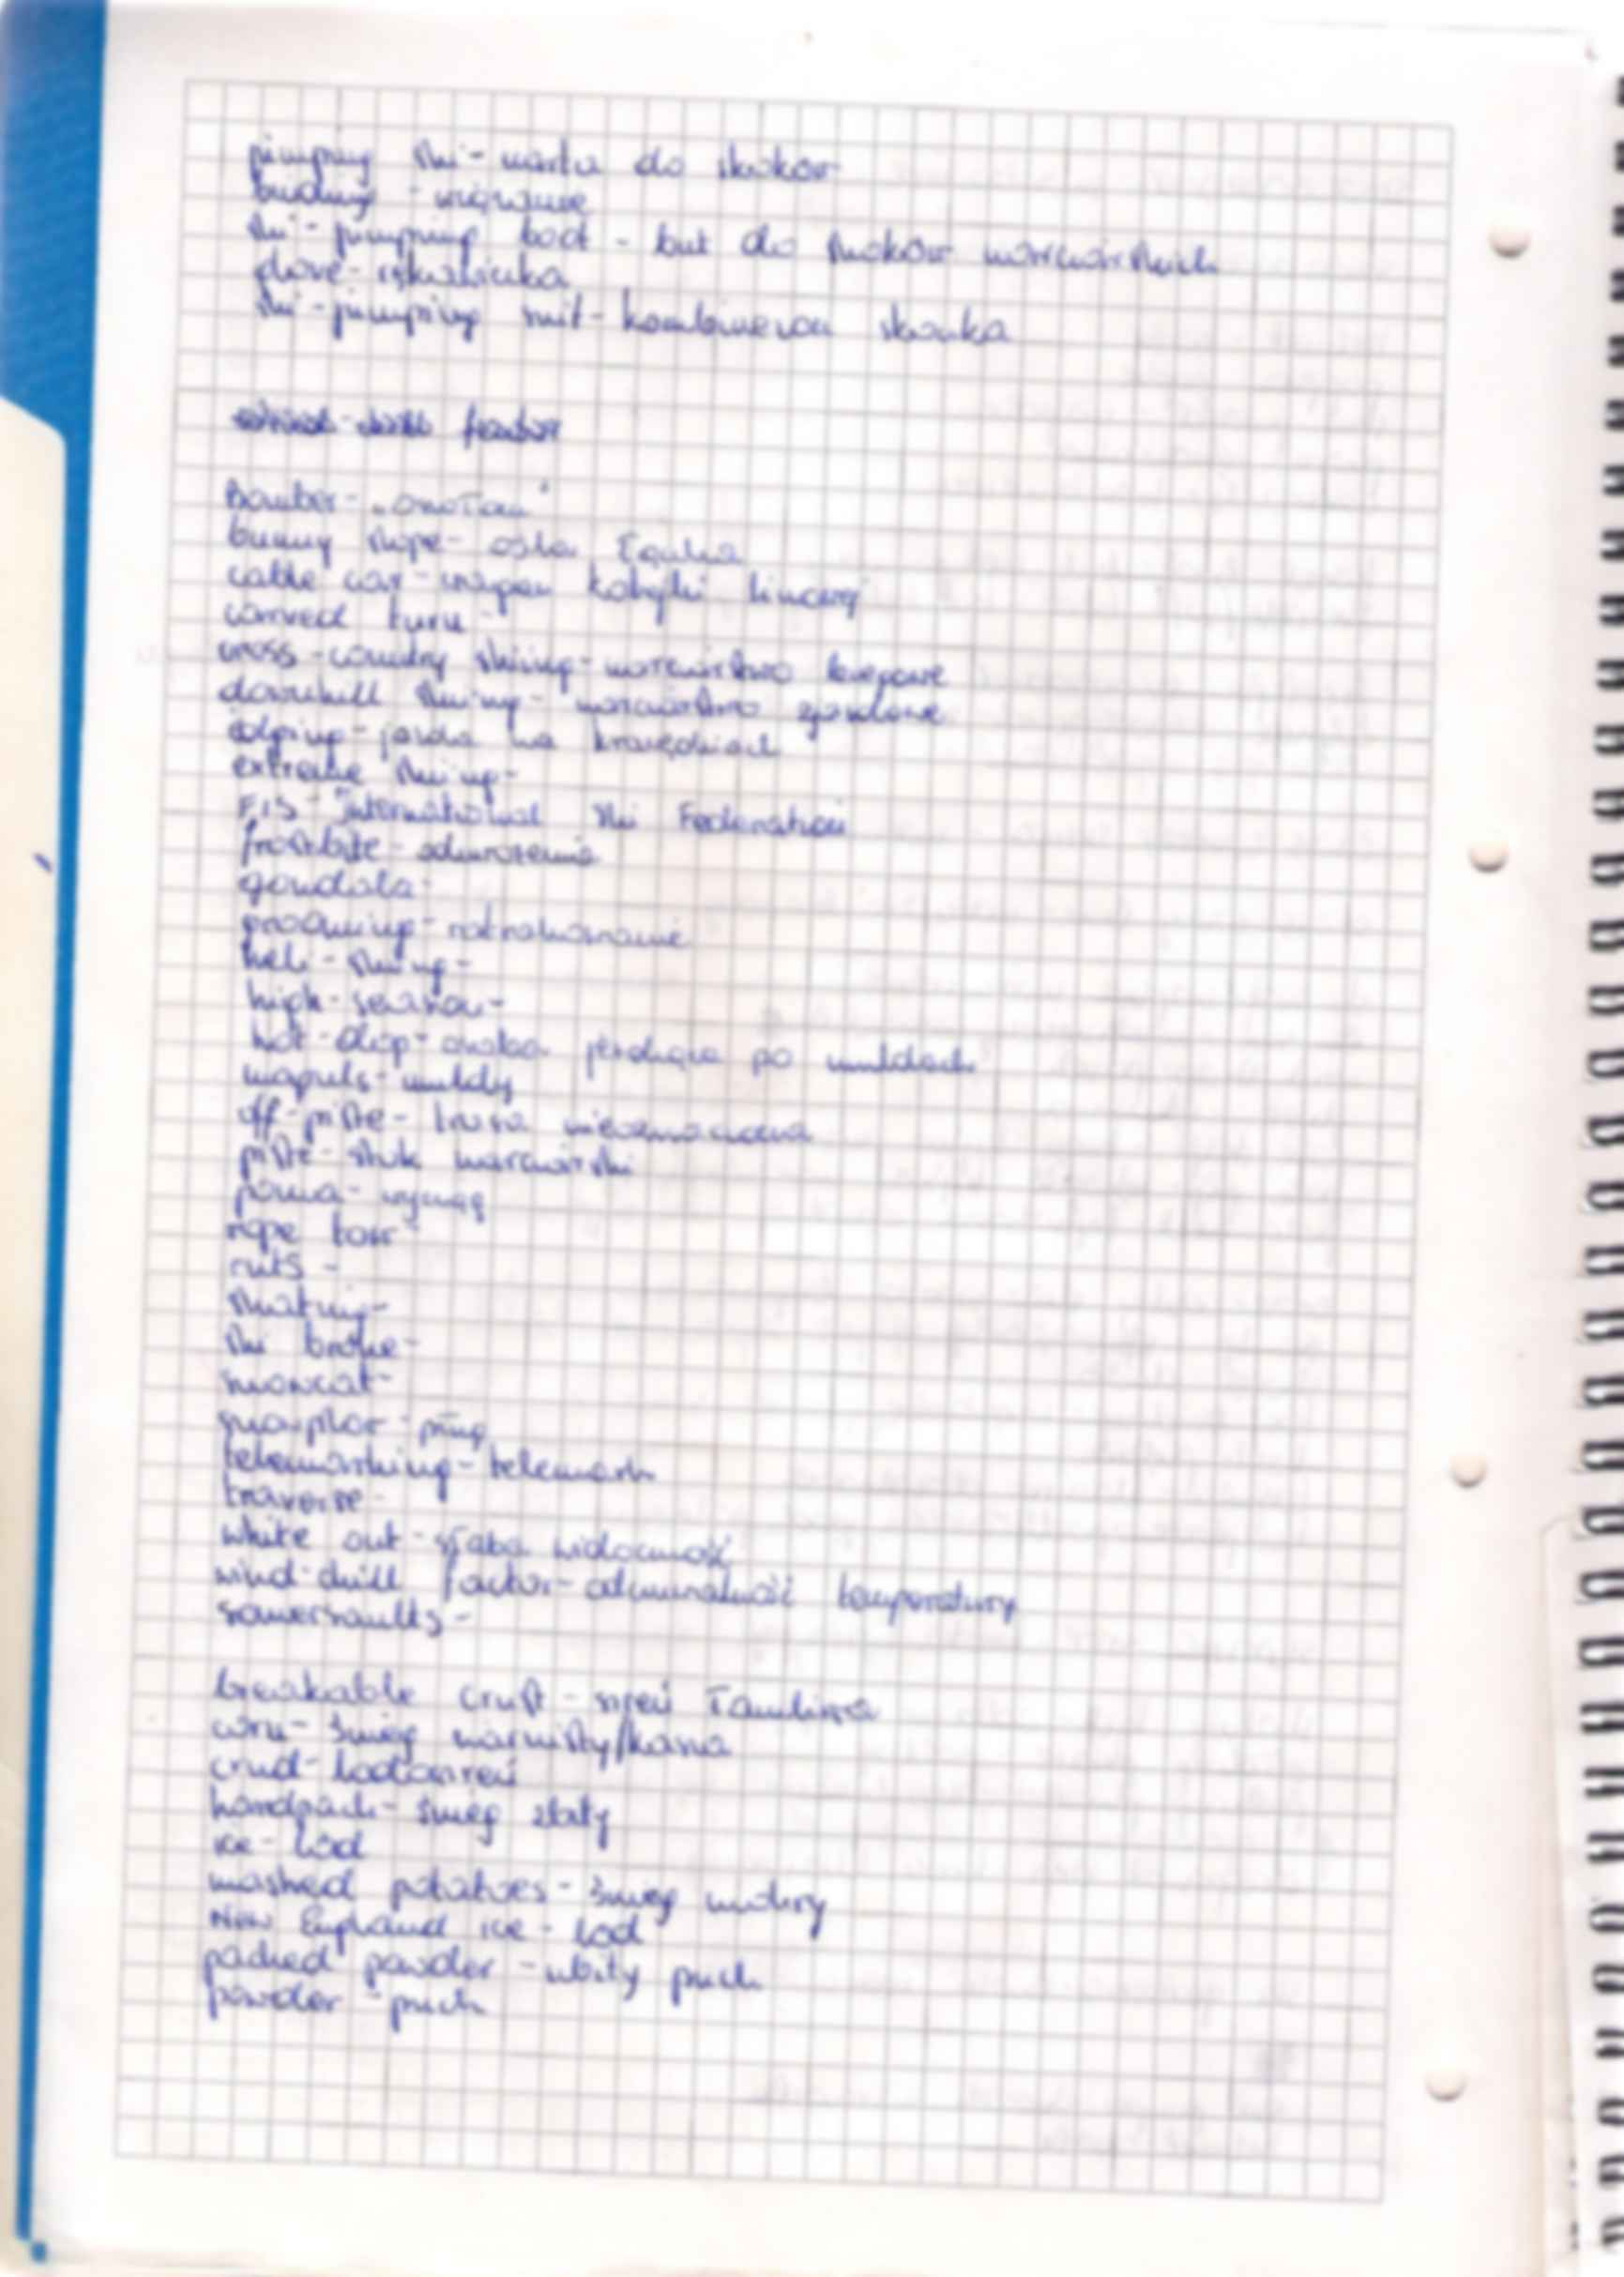 jumping ski - narta do skoków
binding - wiązanie
ski-jumping boot - but do skoków narciarskich
glove - rękawiczka
ski-jumping suit - kombinezon skoczka
factor
Bomber -
bunny slope - ośla łączka
cable car - wagon kolejki linowej
carved turn -
cross-country skiing - narciarstwo biegowe
downhill skiing - narciarstwo zjazdowe
edging - jazda na krawędziach
extreme skiing -
FIS - International Ski Federation
frostbite - odmrożenie
gondola -
grooming - ratrakowanie
heli-skiing -
high-season -
hot-dog - osoba jeżdżąca po muldach
moguls - muldy
off-piste - trasa nieoznaczona
piste - stok narciarski
poma - wyciąg
rope tow -
ruts -
skating -
ski brake -
snowcat -
snowplow - pług
telemarking - telemark
traverse -
white out - słaba widoczność
wind-chill factor - odczuwalność temperatury
somersaults -
breakable crust - szreń łamliwa
corn - śnieg ziarnisty/kasza
crud - lodoszreń
hardpack - śnieg zbity
ice - lód
mashed potatoes - śnieg mokry
New England ice - lód
packed powder - ubity puch
powder - puch